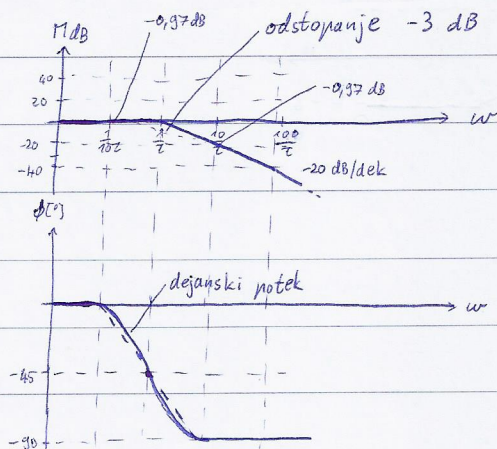 M dB
-0,97 dB
odstopanje -3 dB
-0,97 dB
40
20
ω
1/10τ 1/τ 10/τ 100/τ
-20
-40
-20 dB/dek
ϕ[°]
dejanski potek
ω
-45
-90